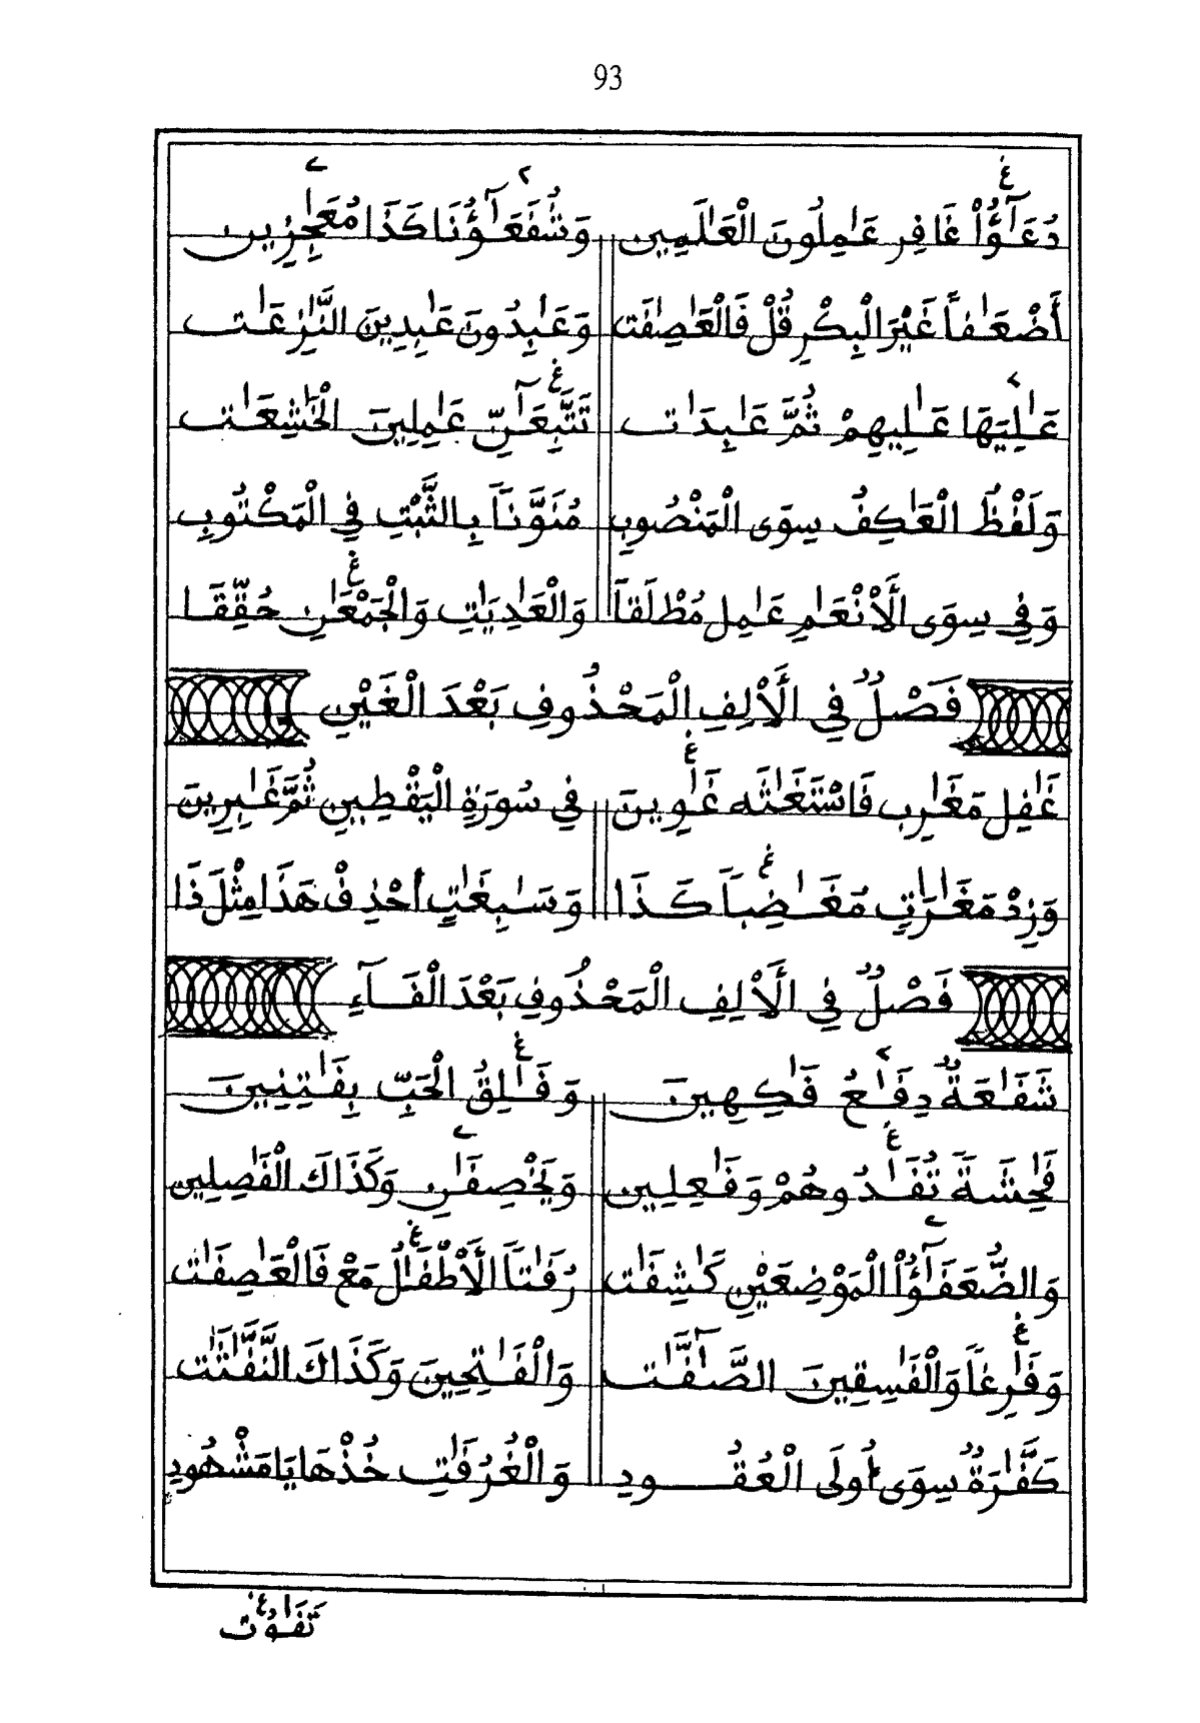 93
دُعَٰٓؤُاْ غَافِرِ عَٰمِلُونَ الْعَٰلَمِينَ وَشُفَعَٰٓؤُنَا كَذَا مُعَٰجِزِينَ
أَضْعَٰفاً غَيْرَ الْبِكْرِ قُلْ فَالْعَٰصِفَٰتِ وَعَٰبِدُونَ عَٰبِدِينَ النَّٰزِعَٰتِ
عَٰلِيَهَا عَٰلِيهِمْ ثُمَّ عَٰبِدَٰتِ تَتَّبِعَٰٓنِّ عَٰمِلِينَ الْخَٰشِعَٰتِ
وَلَفْظُ الْعَٰكِفُ سِوَى الْمَنْصُوبِ مُنَوَّناً بِالثَّبْتِ فِي الْمَكْتُوبِ
وَفِي سِوَى الْأَنْعَٰمِ عَٰمِلِ مُطْلَقاً وَالْعَٰدِيَٰتِ وَالْجَمْعَٰنِ حُقِّقَا
فَصْلٌ فِي الْأَلِفِ الْمَحْذُوفِ بَعْدَ الْغَيْنِ
غَٰفِلِ مَغَٰرِبِ فَاسْتَغَٰثَهُ غَٰوِينَ فِي سُورَةِ الْيَقْطِينِ ثُمَّ غَٰبِرِينَ
وَزِدْ مَغَٰرَٰتٍ مُغَٰضِباً كَذَا وَسَٰبِغَٰتٍ أَحْذِفْ هَذَا مِثْلَ ذَا
فَصْلٌ فِي الْأَلِفِ الْمَحْذُوفِ بَعْدَ الْفَآءِ
شَفَٰعَةٌ دِفَٰعُ فَٰكِهِينَ وَفَٰلِقُ الْحَبِّ بِفَٰتِنِينَ
فَٰحِشَةَ تُفَٰدُوهُمْ وَفَٰعِلِينَ وَيَخْصِفَٰنِ وَكَذَاكَ الْفَٰصِلِينَ
وَالضُّعَفَٰٓؤُاْ الْمَوْضِعَيْنِ كَٰشِفَٰتُ رُفَٰتاً الْأَطْفَٰلُ مَعْ فَالْعَٰصِفَٰتِ
وَفَٰرِغاً وَالْفَٰسِقِينَ الصَّٰٓفَّٰتِ وَالْفَٰتِحِينَ وَكَذَاكَ النَّفَّٰثَٰتِ
كَفَّٰرَةٌ سِوَى أُولَى الْعُقُودِ وَالْغُرُفَٰتِ خُذْهَا يَا مَشْهُودِ
تَفَٰوُتِ